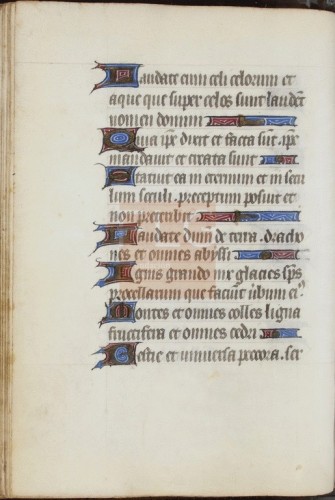 Laudate eum celi celorum et
aque que super celos sunt laudēt
nomen domini
Quia ipē dixit et facta sūt. ipē
mandauit et creata sunt
Statuit ea in eternum et in secu
lum seculi. preceptum posuit et
non preteribit
Laudate dūm de terra. dracho
nes et omnes abyssi
Ignis grando nix glacies sp̄s
procellarum que faciūt ūbum eiꝰ
Montes et omnes colles ligna
fructifera et omnes cedri
Bestie et uniuersa pecora. ser